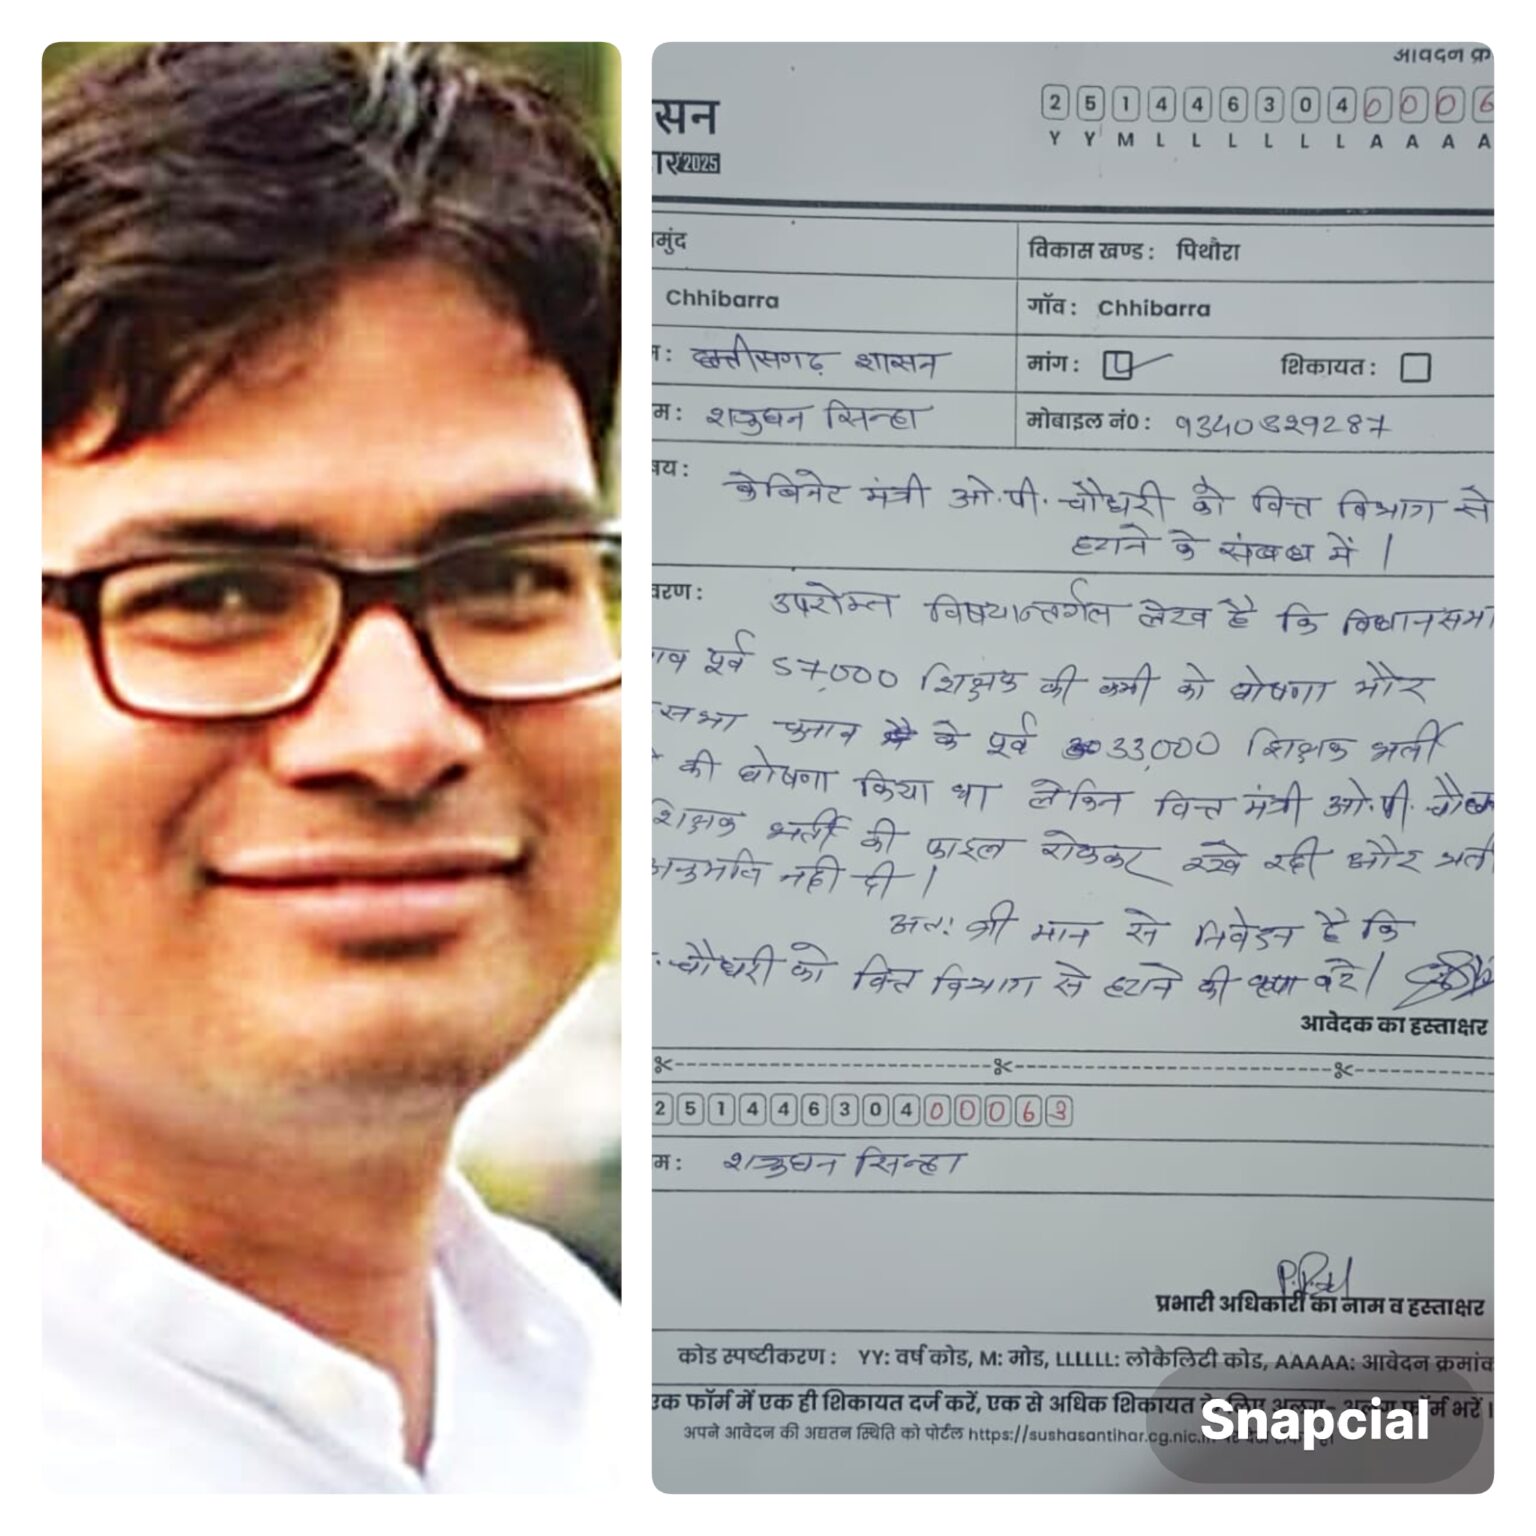 आवदन क्र
सन
2025
2 5 1 4 4 6 3 0 4 0 0 0 6
Y Y M L L L L L L A A A A
मुंद
विकास खण्ड : पिथौरा
Chhibarra
गॉव : Chhibarra
छत्तीसगढ़ शासन
मांग :
शिकायत :
म: शत्रुघन सिन्हा
मोबाइल नं0: 9340329287
षय :
केबिनेट मंत्री ओ.पी. चौधरी को वित्त विभाग से
हटाने के संबंध में |
वरण :
उपरोक्त विषयान्तर्गत लेख है कि विधानसभा
पूर्व 57,000 शिक्षक की कमी को घोषणा और
सभा चुनाव के पूर्व 33,000 शिक्षक भर्ती
की घोषणा किया था लेकिन वित्त मंत्री ओ.पी.
शिक्षक भर्ती की फाइल रोककर रखे रही और
नही दी |
अतः श्री मान से निवेदन है कि
चौधरी को वित्त विभाग से हटाने की कृपा करे |
आवेदक का हस्ताक्षर
2 5 1 4 4 6 3 0 4 0 0 0 6 3
म: शत्रुघन सिन्हा
प्रभारी अधिकारी का नाम व हस्ताक्षर
कोड स्पष्टीकरण : YY: वर्ष कोड, M: मोड, LLLLLL: लोकैलिटी कोड, AAAAA: आवेदन क्रमांक
एक फॉर्म में एक ही शिकायत दर्ज करें, एक से अधिक शिकायत के लिए अलग- अलग फॉर्म भरें |
अपने आवेदन की अद्यतन स्थिति को पोर्टल https://sushasantihar.cg.nic.in
Snapcial